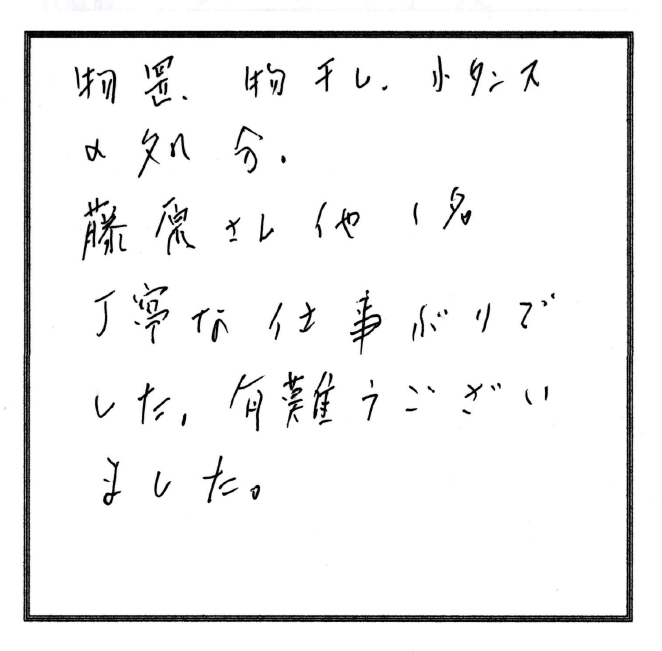 物置、物干し、小タンス
の処分。
藤原さん他1名
丁寧な仕事ぶりで
した。有難うござい
ました。